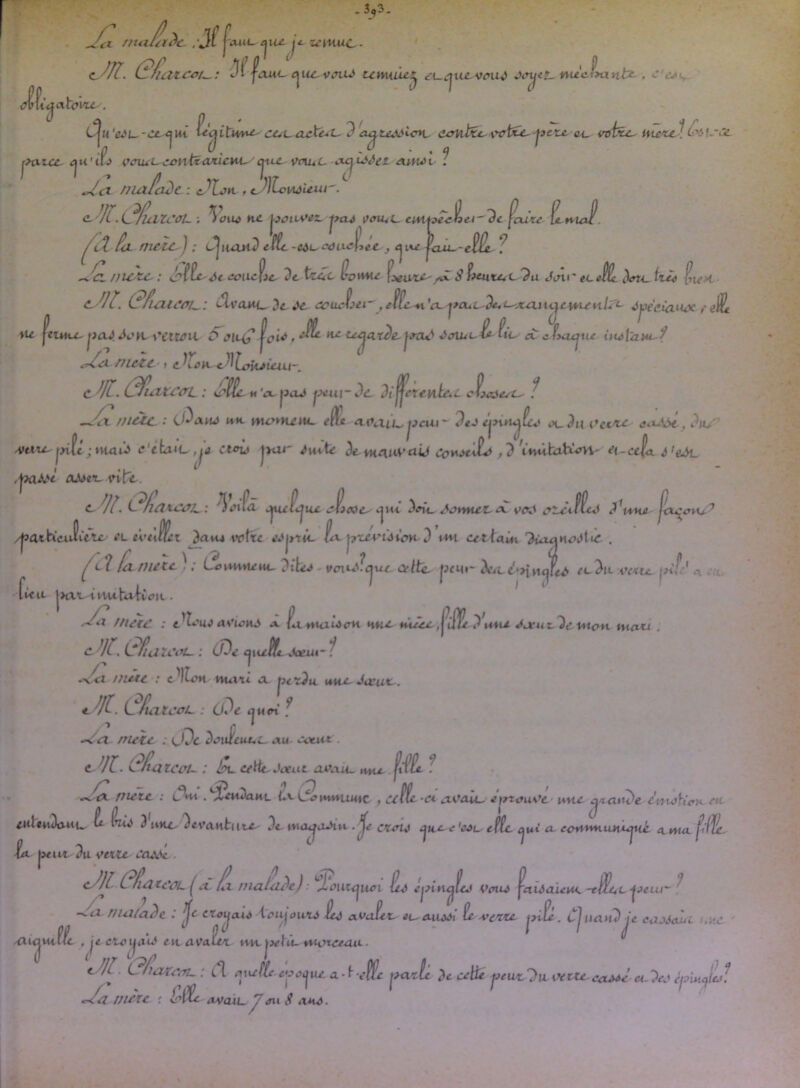 - 393 -
La malade : Il faut que je remue.
M. Charcot : Il faut que vous remuiez et que vous soyez méchante, c'est
obligatoire.
Qu'est-ce qui légitime cet actes d'agression contre votre père et votre mère ? Est-ce
parce qu'ils vous contrarient que vous agissez ainsi ?
La malade : Non, Monsieur.
M. Charcot : Vous ne pouvez pas vous empêcher de faire le mal.
(A la mère) : Quand elle est couchée, que fait-elle ?
La mère : Elle se couche de très bonne heure, à 8 heures du soir et elle dort très bien.
M. Charcot : Avant de se coucher, elle n'a pas des rangements spéciaux ; elle
ne ferme pas son verrou 5 ou 6 fois, elle ne regarde pas sous le lit à chaque instant ?
La mère : Non Monsieur.
M. Charcot : Elle n'a pas peur de différentes choses ?
La mère : Dans un moment elle avait peur des épingles et du verre cassé, du
verre pilé ; mais c'était, je crois par suite de mauvais conseils, d'imitation et cela s'est
passé assez vite.
M. Charcot : Voilà quelque chose qui doit sonner à vos oreilles d'une façon
particulière et éveiller dans votre esprit la prévision d'un certain diagnostic.
(A la mère) : Comment dites-vous que cette peur des épingles et du verre pilé a eu
lieu par imitation.
La mère : Nous avions à la maison une nièce, fille d'une sœur de mon mari.
M. Charcot : De quelle sœur ?
La mère : Mon mari a perdu une sœur.
M. Charcot : De quoi ?
La mère : De douleurs au cœur.
M. Charcot : Et cette sœur avait une fille ?
La mère : Oui. Pendant la Commune, celle-ci avait éprouvé une grande émotion en
entendant le bris d'une devanture de magasin. Je crois que c'est elle qui a communiqué à ma fille
la peur du verre cassé.
M. Charcot (à la malade) : Pourquoi les épingles vous faisaient-elles peur ?
La malade : Je croyais toujours les avaler et aussi le verre pilé. Quand je cassais une
aiguille, je croyais en avaler un petit morceau.
M. Charcot : A quelle époque a-t-elle parlé de cette peur du verre cassé et des épingles ?
La mère : Elle avait 7 ou 8 ans.